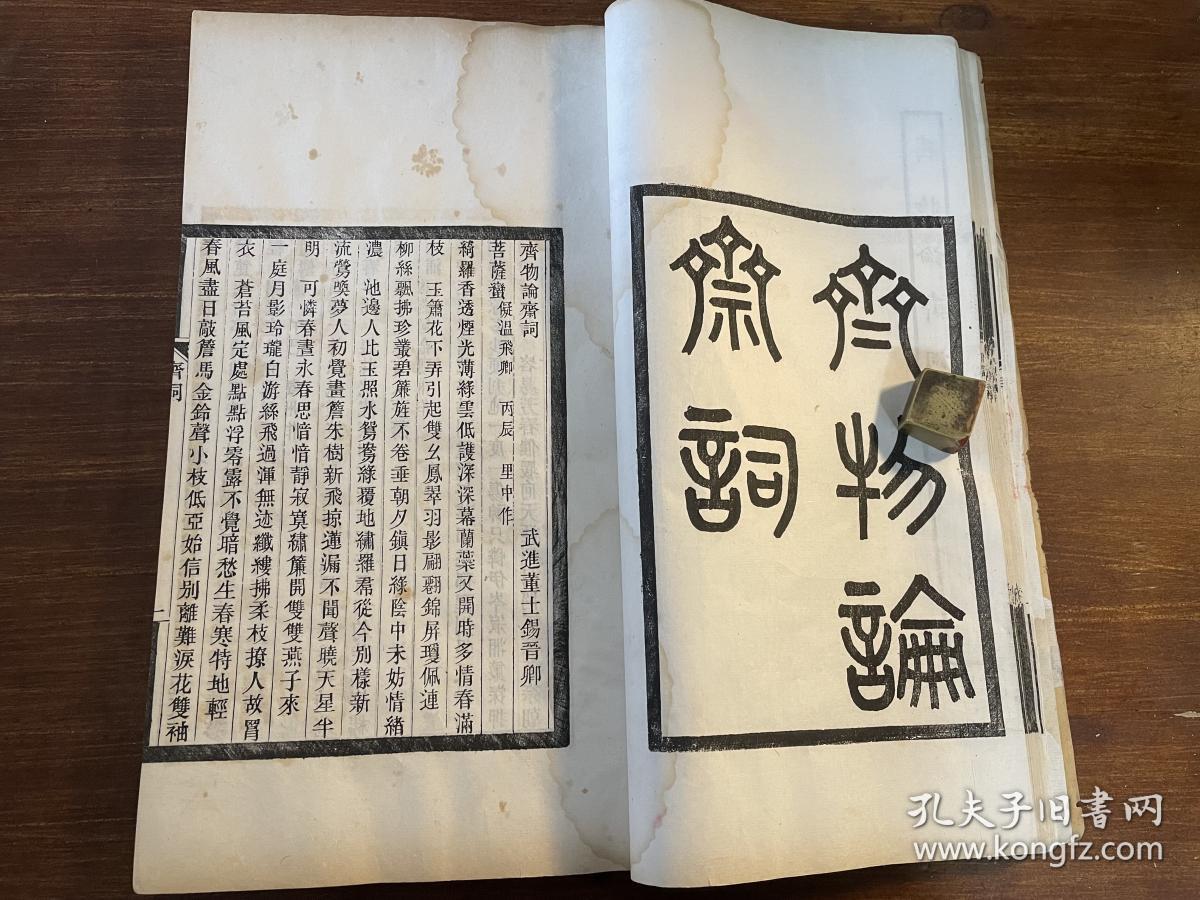 齊物論
齋詞
齊物論齋詞　武進董士錫晉卿
菩薩蠻　儗溫飛卿　丙辰　里中作
綺羅香透煙光薄綠雲低護深深幕蘭葉又開時多情春滿
枝　玉簫花下弄引起雙幺鳳翠羽影翩翾錦屏瓊佩連
柳絲飄拂珍叢碧簾旌不卷垂朝夕鎭日綠陰中未妨情緒
濃　池邊人比玉照水鴛鴦綠覆地繡羅帬從今別樣新
流鶯喚夢人初覺畫簷朱樹新飛掠蓮漏不聞聲曉天星半
明　可憐春晝永春思愔愔靜寂寞繡簾開雙雙燕子來
一庭月影玲瓏白游絲飛過渾無迹纖縷拂柔枝撩人故罥
衣　蒼苔風定處點點浮零露不覺暗愁生春寒特地輕
春風盡日敲簷馬金鈴聲小枝低亞始信別離難淚花雙袖
齋詞
二
孔夫子旧书网
www.kongfz.com